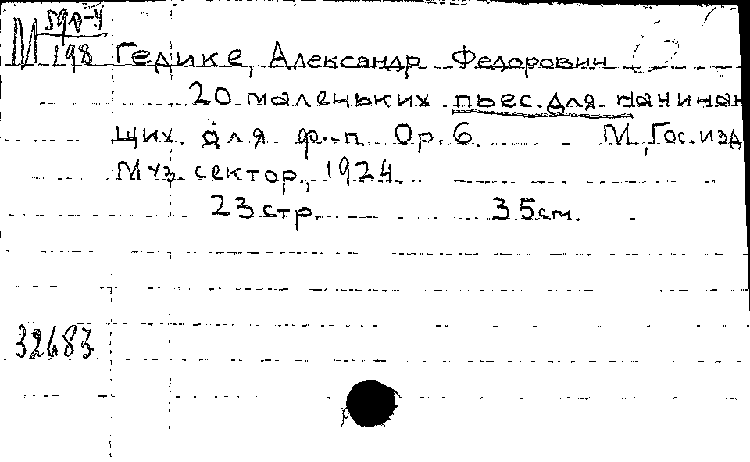 М 590-4
198 Гедике, Александр Федорович
20 маленьких пьес для начинаю
щих для ф.-п. Ор. 6. М, Гос. изд
Муз. сектор, 1924.
23 стр. 35 см.
32683